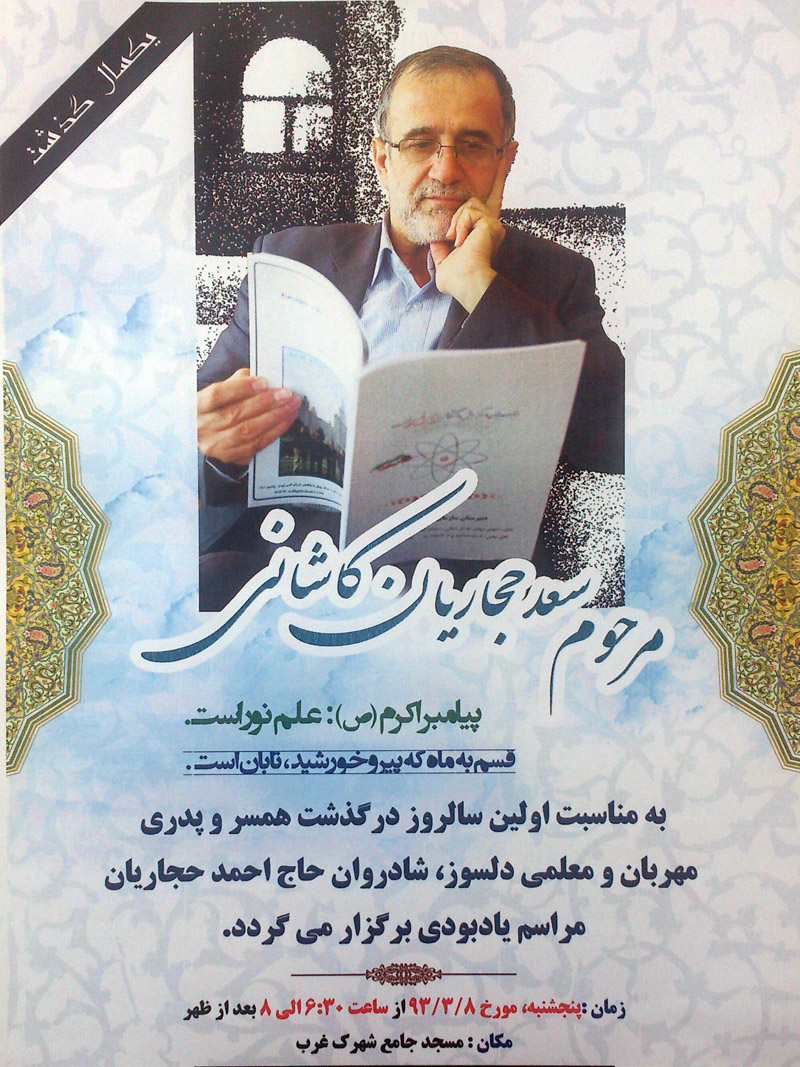 یکسال گذشت
مرحوم سعد حجاریان کاشانی
پیامبر اکرم (ص): علم نور است.
قسم به ماه که پیرو خورشید، تابان است.
به مناسبت اولین سالروز درگذشت همسر و پدری
مهربان و معلمی دلسوز، شادروان حاج احمد حجاریان
مراسم یادبودی برگزار می گردد.
زمان :پنجشنبه، مورخ ۹۳/۳/۸ از ساعت ۶:۳۰ الی ۸ بعد از ظهر
مکان : مسجد جامع شهرک غرب